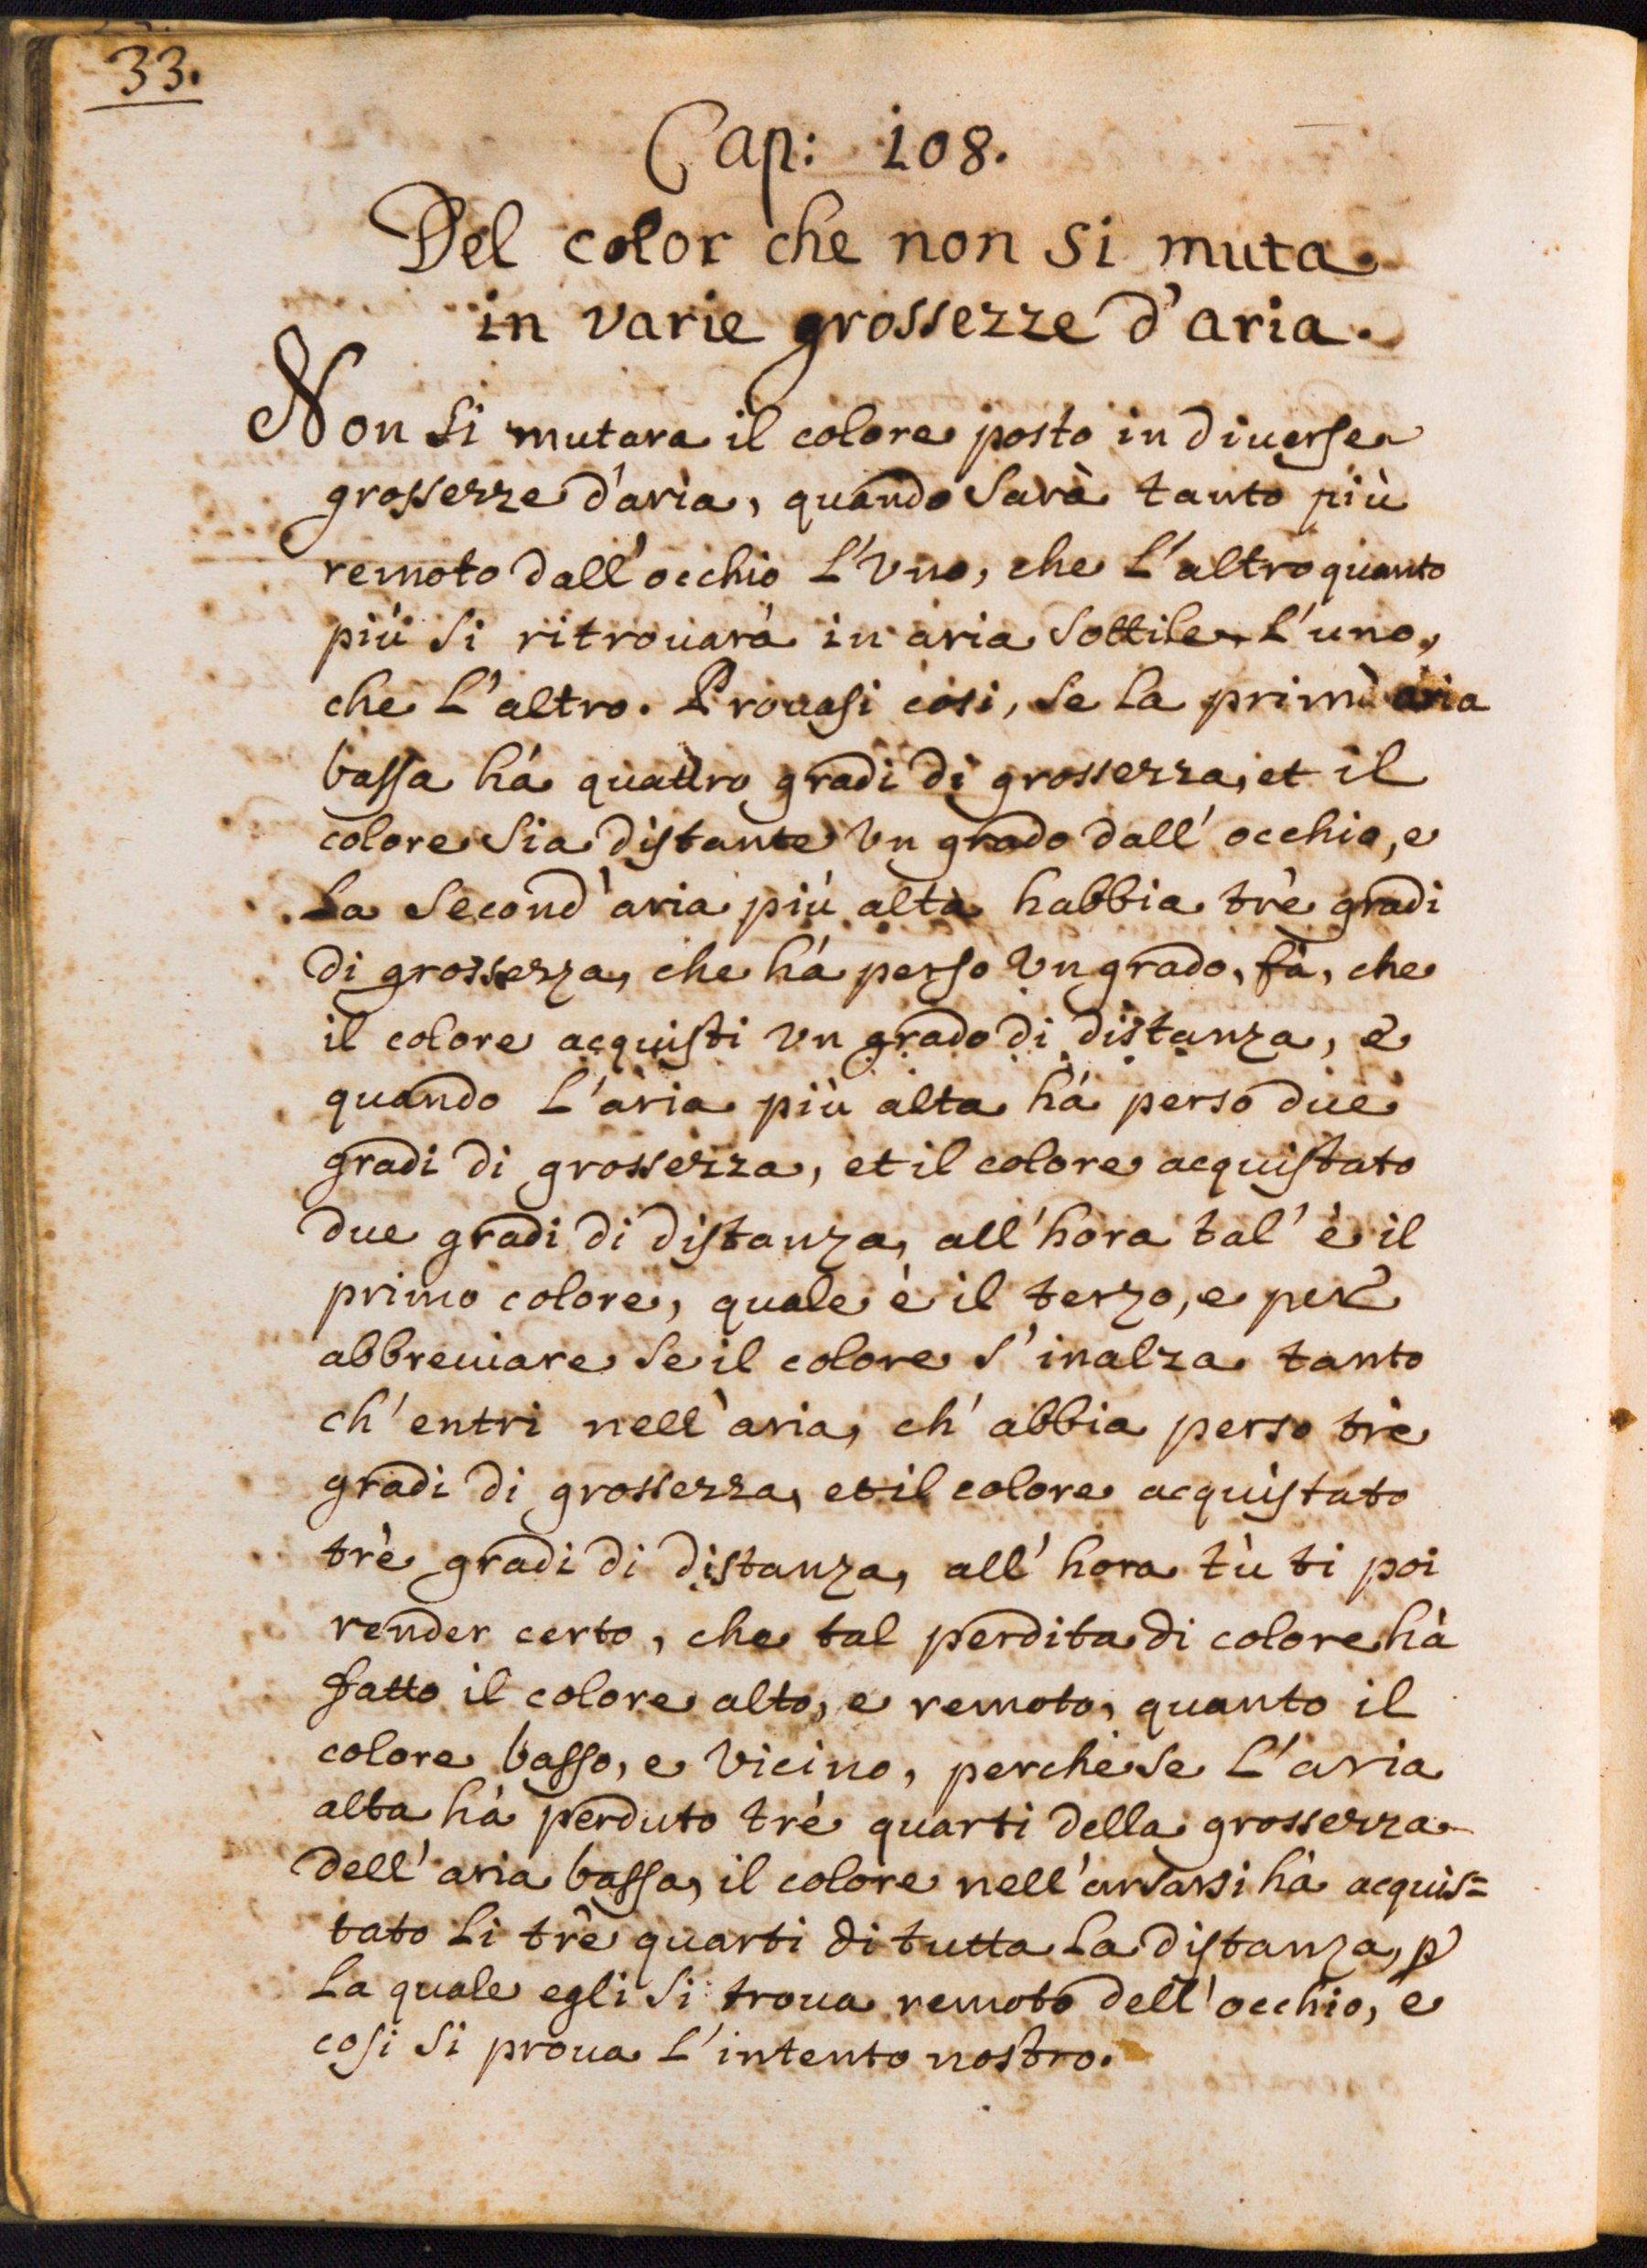 33.
Cap: 108.
Del color che non si muta
in varie grossezze d'aria.
Non si mutara il colore posto in diuerse
grossezze d'aria, quando sarà tanto più
remoto dall'occhio l'vno, che l'altro quanto
più si ritrouarà in aria sottile l'uno,
che l'altro. Prouasi cosi, se la prim' aria
bassa há quattro gradi di grossezza, et il
colore sia distante vn grado dall' occhio, e
la second' aria più alta habbia trè gradi
di grossezza, che há perso vn grado, fà, che
il colore acquisti vn grado di distanza, e
quando l'aria più alta há perso due
gradi di grossezza, et il colore acquistato
due gradi di distanza, all'hora tal' è il
primo colore, quale è il terzo, e per
abbreuiare se il colore s'inalza tanto
ch'entri nell'aria, ch'abbia perso trè
gradi di grossezza, et il colore acquistato
trè gradi di distanza, all'hora tù ti poi
render certo, che tal perdita di colore hà
fatto il colore alto, e remoto, quanto il
colore basso, e vicino, perche se l'aria
alta hà perduto trè quarti della grossezza
dell'aria bassa, il colore nell' hà acquis=
tato li trè quarti di tutta la distanza, p
la quale egli si troua remoto dell'occhio, e
cosi si proua l'intento nostro.